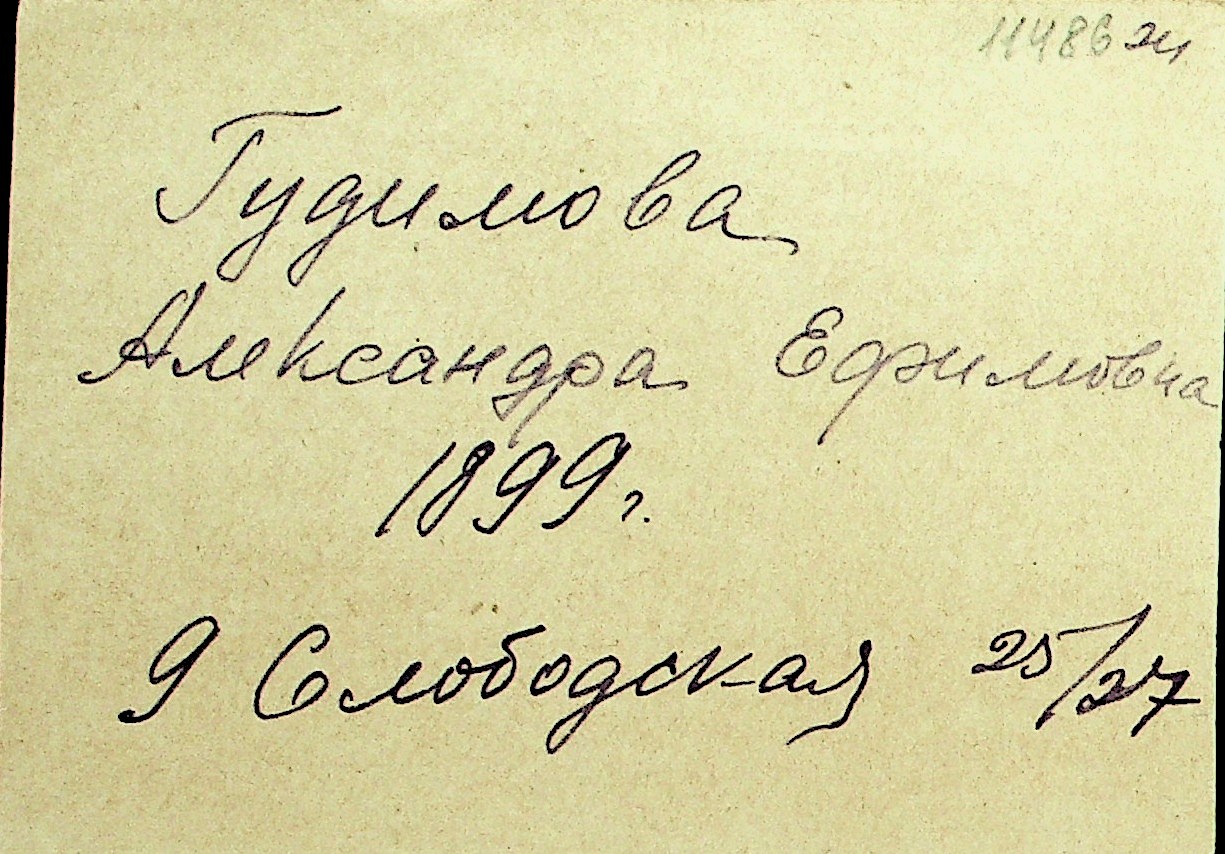 11486 ж
Гудимова
Александра Ефимовна
1899 г.
9 Слободская 25/27